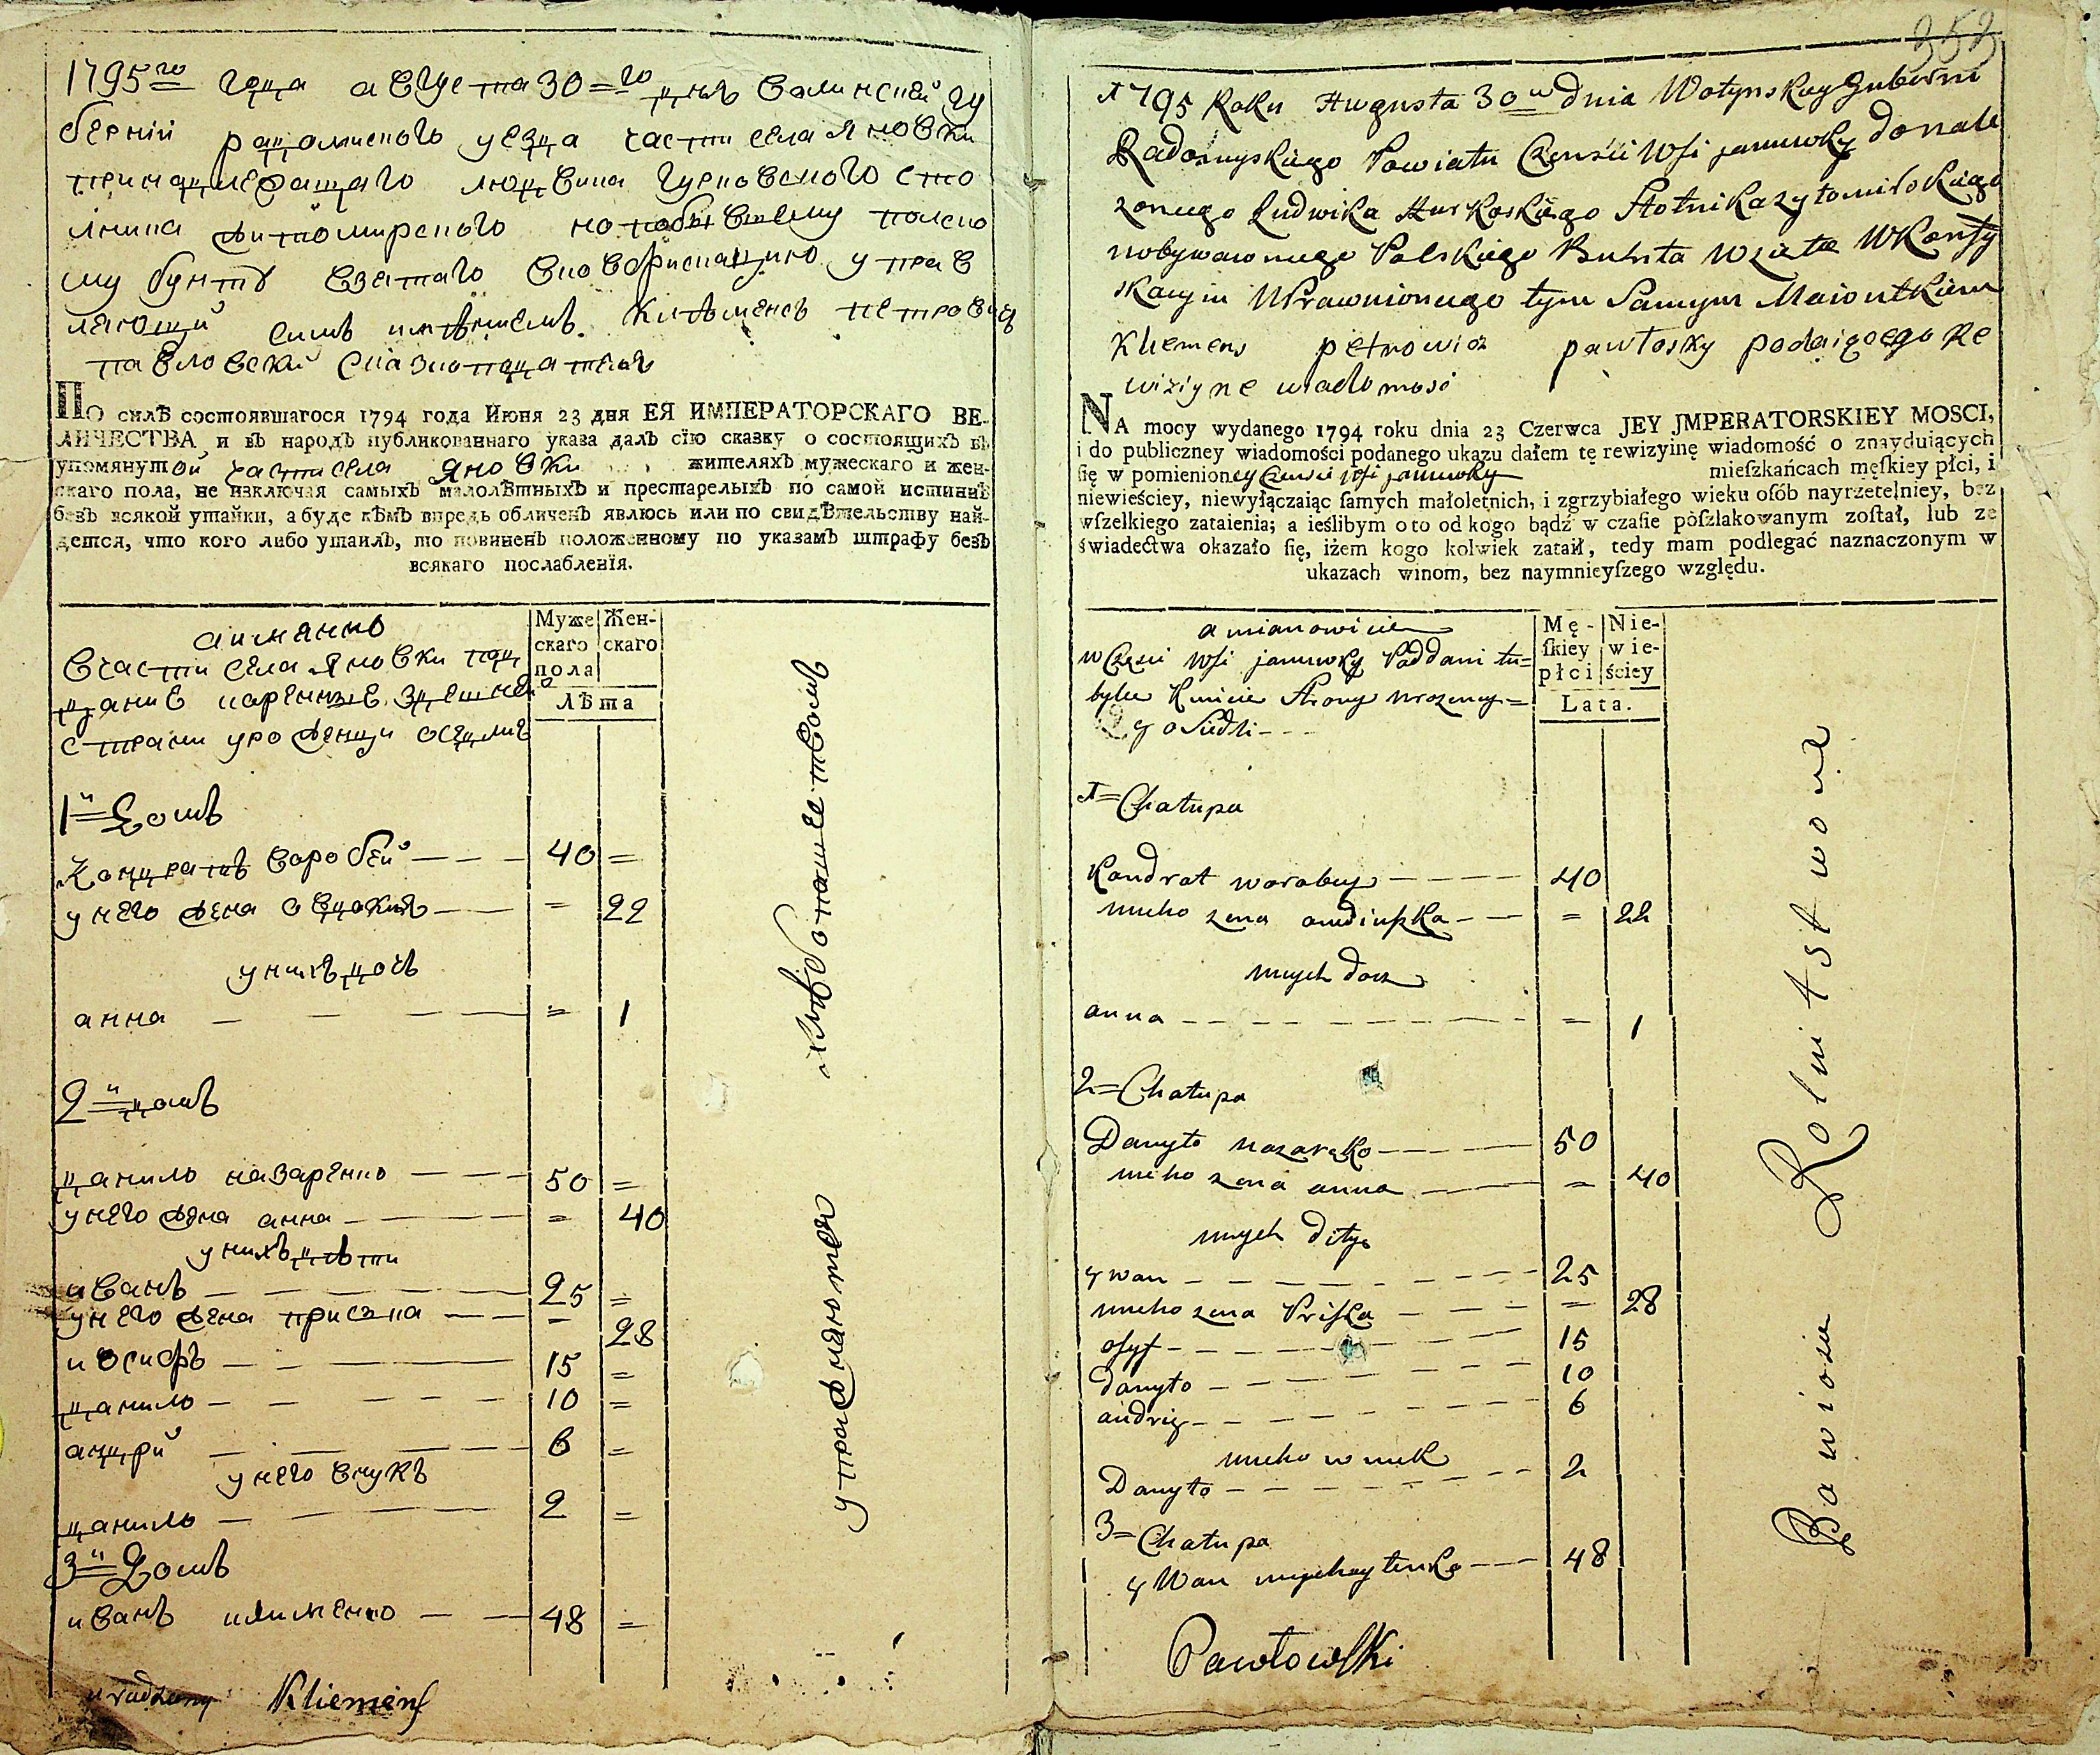 1795го года августа 30=го дня волинской гу
берній радомиского уезда части села яновки
принадлежащаго людвика гурковского сто
лника житомирского по
му бунтъ взятаго у прав
ляющій симъ имѣниемъ. Климентъ петровичъ
павловский сказкоподатель
По силѣ состоявшагося 1794 года Июня 23 дня ЕЯ ИМПЕРАТОРСКАГО ВЕ-
ЛИЧЕСТВА и въ народъ публикованнаго указа далъ сїю сказку о состоящихъ въ
упомянутой части села яновки жителяхъ мужескаго и жен-
скаго пола, не изключая самыхъ малолѣтныхъ и престарелыхъ по самой истиннѣ
безъ всякой утайки, а буде кѣмъ впредь обличенъ явлюсь или по свидѣтельству най-
дется, что кого либо утаилъ, то повиненъ положенному по указамъ штрафу безъ
всякаго послабленїя.
а имянно
Вчасти села яновки под
дание коренные здешней
сторони уроженци оседлие
Муже
скаго
пола
Жен-
скаго
Лѣта
1й=Домъ
Кондратъ воробей — — — 40 =
унего жена овдокия — — = 22
унихъ дочь
анна — — — — = 1
2й=домъ
данило назаренко — — — 50 =
унего жена анна — — — = 40
унихъ дѣти
иванъ — — — — 25 =
унего жена приська — — = 28
иосифъ — — — 15 =
данило — — — — 10 =
андрий — — — — 6 =
унего внукъ
данило — — — 2 =
3й=Домъ
иванъ — — 48 =
упражняются хлѣбопашеством
urodzony Kliemens
353
1795 Roku Augusta 30 dnia Wołynskey Guberni
Radomyskiego Powiatu Częnści Wsi januwky donale
zonego Ludwika Hurkoskiego Stolnika zytomirskiego
Polskiego Buhsta wzięte WKonfy
skacyiu WPrawnionego tym Samym Maiontkiem
Kliemens petrowicz pawłosky podaiącego Re
wiziyne wiadomosć
NA mocy wydanego 1794 roku dnia 23 Czerwca JEY JMPERATORSKIEY MOSCI,
i do publiczney wiadomości podanego ukazu daſem tę rewizyinę wiadomość o znayduiących
ſię w pomienioney Czensci Wsi januwky mieſzkańcach męſkiey płci, i
niewieściey, niewyłączaiąc ſamych małoletnich, i zgrzybiałego wieku oſób nayrzetelniey, bez
wſzelkiego zataienia; a ieślibym o to od kogo bądź w czaſie pòſzlakowanym zoſtał, lub ze
świadectwa okazało ſię, iżem kogo kolwiek zataił, tedy mam podlegać naznaczonym w
ukazach winom, bez naymnieyſzego względu.
a mianowicie
w Częsci Wsi januwky Poddani tu=
Strony
y oSiedli - - -
Mę-
ſkiey
płci
Nie-
wie-
ściey
Lata.
1=Chałupa
Kondrat worobey — — — — 40
nieho zena awdiuszka — — = 22
unych docz
anna — — — — — — = 1
2=Chałupa
Danyło nazareko — — — — 50
nieho zena anna — — = 40
unych dity
ywan — — — — — — 25
unieho zena Priſka — — — = 28
oſyf — — — — — — 15
danyło — — — — — — 10
andriy — — — — — — 6
unieho wnuk
Danyło — — — — — — 2
3=Chałupa
yWan — — — 48
Bawiosie Rolnitstwome
PawłowſKi